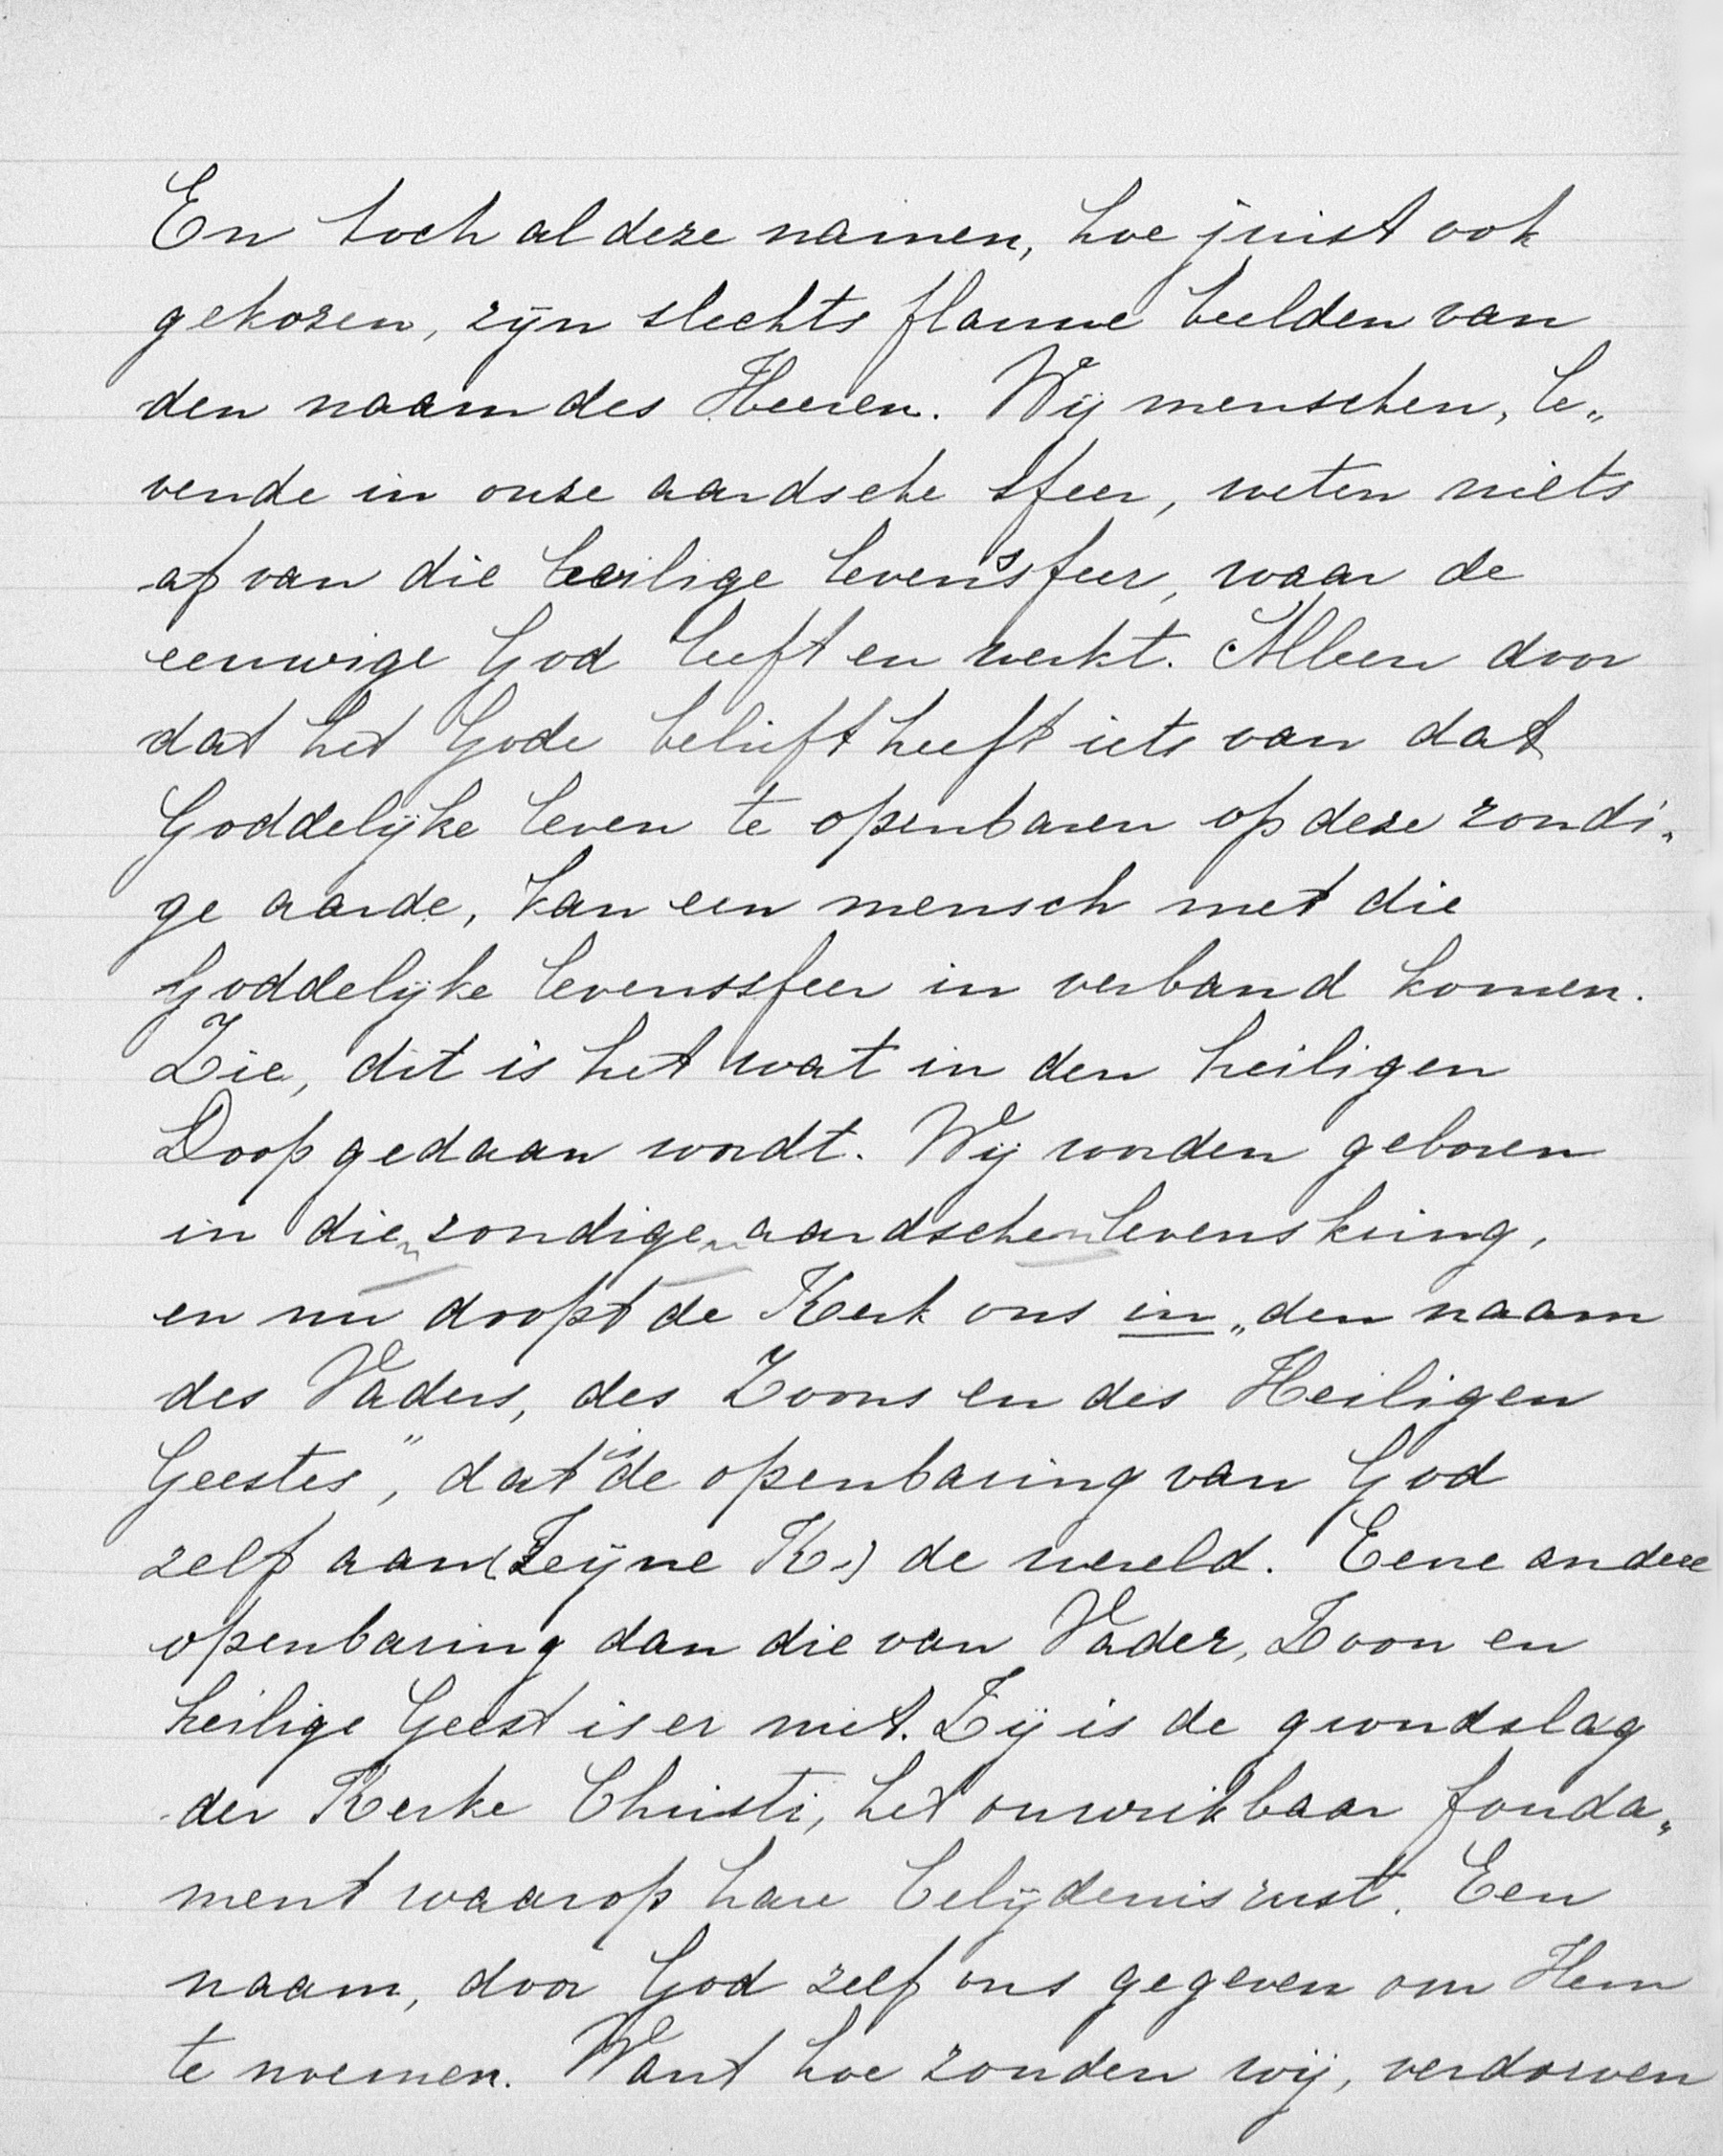 En toch al deze namen, hoe juist ook
gekozen, zijn slechts flauwe beelden van
den naam des Heeren. Wij menschen, le„
vende in onze aardsche sfeer, weten niets
af van die heilige levenssfeer, waar de
eeuwige God leeft en werkt. Alleen door
dat het Gode belieft heeft iets van dat
Goddelijke leven te openbaren op deze zondi„
ge aarde, kan een mensch met die
Goddelijke levenssfeer in verband komen.
Zie, dit is het wat in den heiligen
Doop gedaan wordt. Wij worden geboren
in dien zondigen aardschen levenskring,
en nu doopt de Kerk ons in „den naam
des Vaders, des Zoons en des Heiligen
Geestes”, dat is de openbaring van God
zelf aan (Zijne K.) de wereld. Eene andere
openbaring dan die van Vader, Zoon en
heilige Geest is er niet. Zij is de grondslag
der Kerke Christi, het onwrikbaar fonda„
ment waarop hare belijdenis rust. Een
naam, door God zelf ons gegeven om Hem
te noemen. Want hoe zouden wij, verdorven